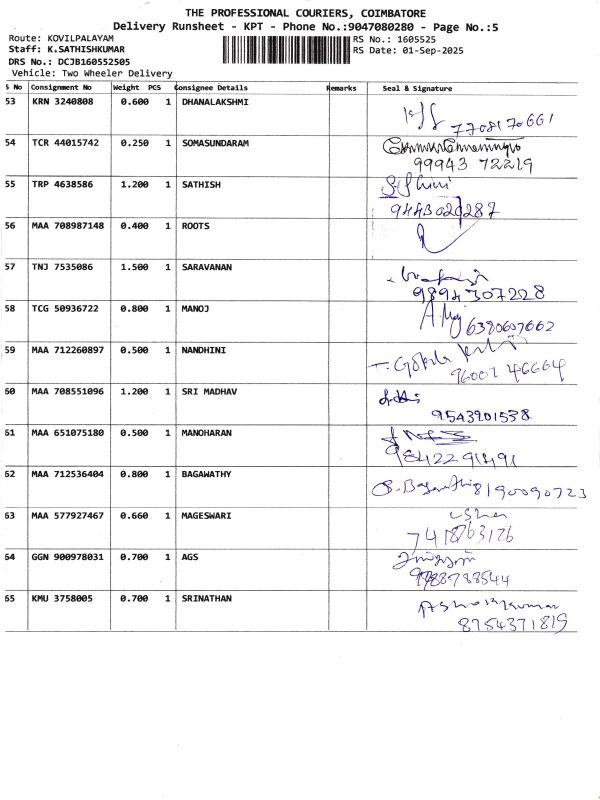 THE PROFESSIONAL COURIERS, COIMBATORE
Delivery Runsheet - KPT - Phone No.:9047080280 - Page No.:5
Route: KOVILPALAYAM
RS No.: 1605525
Staff: K.SATHISHKUMAR
RS Date: 01-Sep-2025
DRS No.: DCJB160552505
Vehicle: Two Wheeler Delivery
S No Consignment No Weight PCS Consignee Details Remarks Seal & Signature
53 KRN 3240808 0.600 1 DHANALAKSHMI
7708170661
54 TCR 44015742 0.250 1 SOMASUNDARAM
99943 72219
55 TRP 4638586 1.200 1 SATHISH
9443020287
56 MAA 708987148 0.400 1 ROOTS
57 TNJ 7535086 1.500 1 SARAVANAN
9894307228
58 TCG 50936722 0.800 1 MANOJ
6380607662
59 MAA 712260897 0.500 1 NANDHINI
96007 46664
60 MAA 708551096 1.200 1 SRI MADHAV
9543901538
61 MAA 651075180 0.500 1 MANOHARAN
9842291491
62 MAA 712536404 0.800 1 BAGAWATHY
8190090723
63 MAA 577927467 0.660 1 MAGESWARI
7418763126
64 GGN 900978031 0.700 1 AGS
65 KMU 3758005 0.700 1 SRINATHAN
Ashokkumar
8754371819